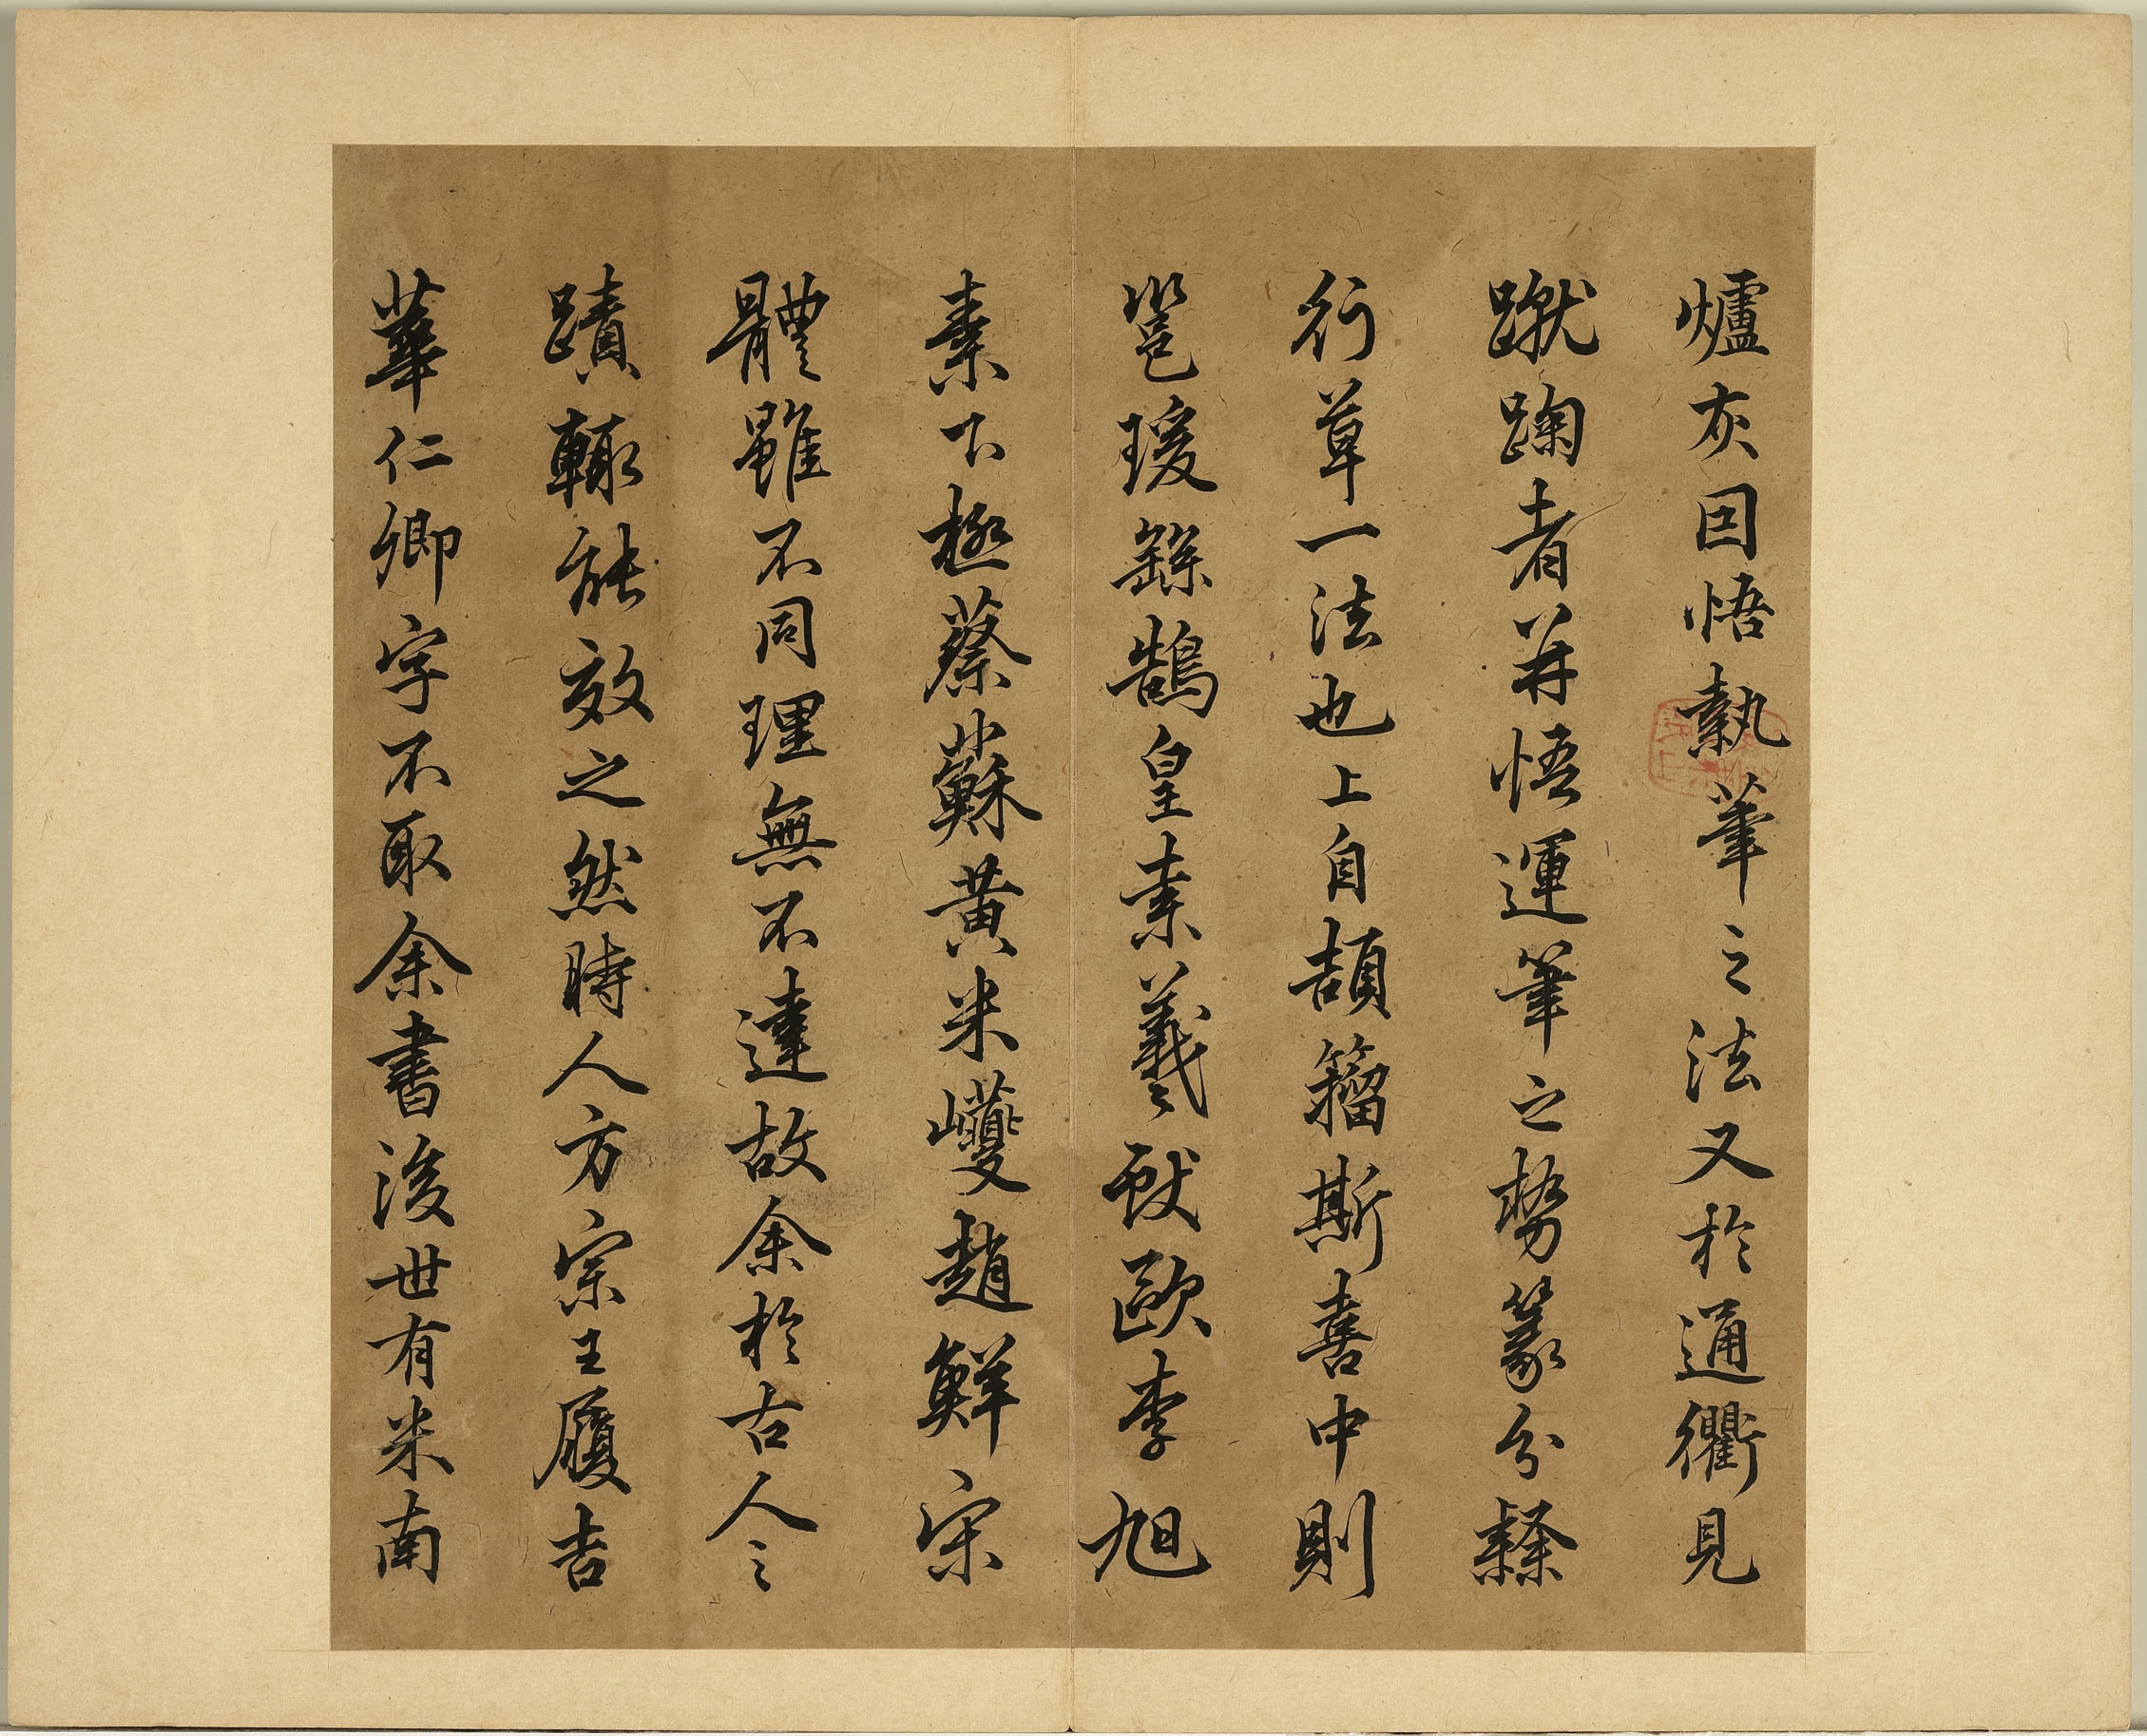 爐灰因悟執筆之法又於通衢見
蹴踘者並悟運筆之勢篆分隸
行草一法也上自頡籀斯喜中則
邕瑗繇鵠皇素羲獻歐李旭
素下極蔡蘇黃米巙趙鮮宋
體雖不同理無不達故余於古人之
蹟輒能效之然時人方宗王履吉
華仁卿字不取余書後世有米南